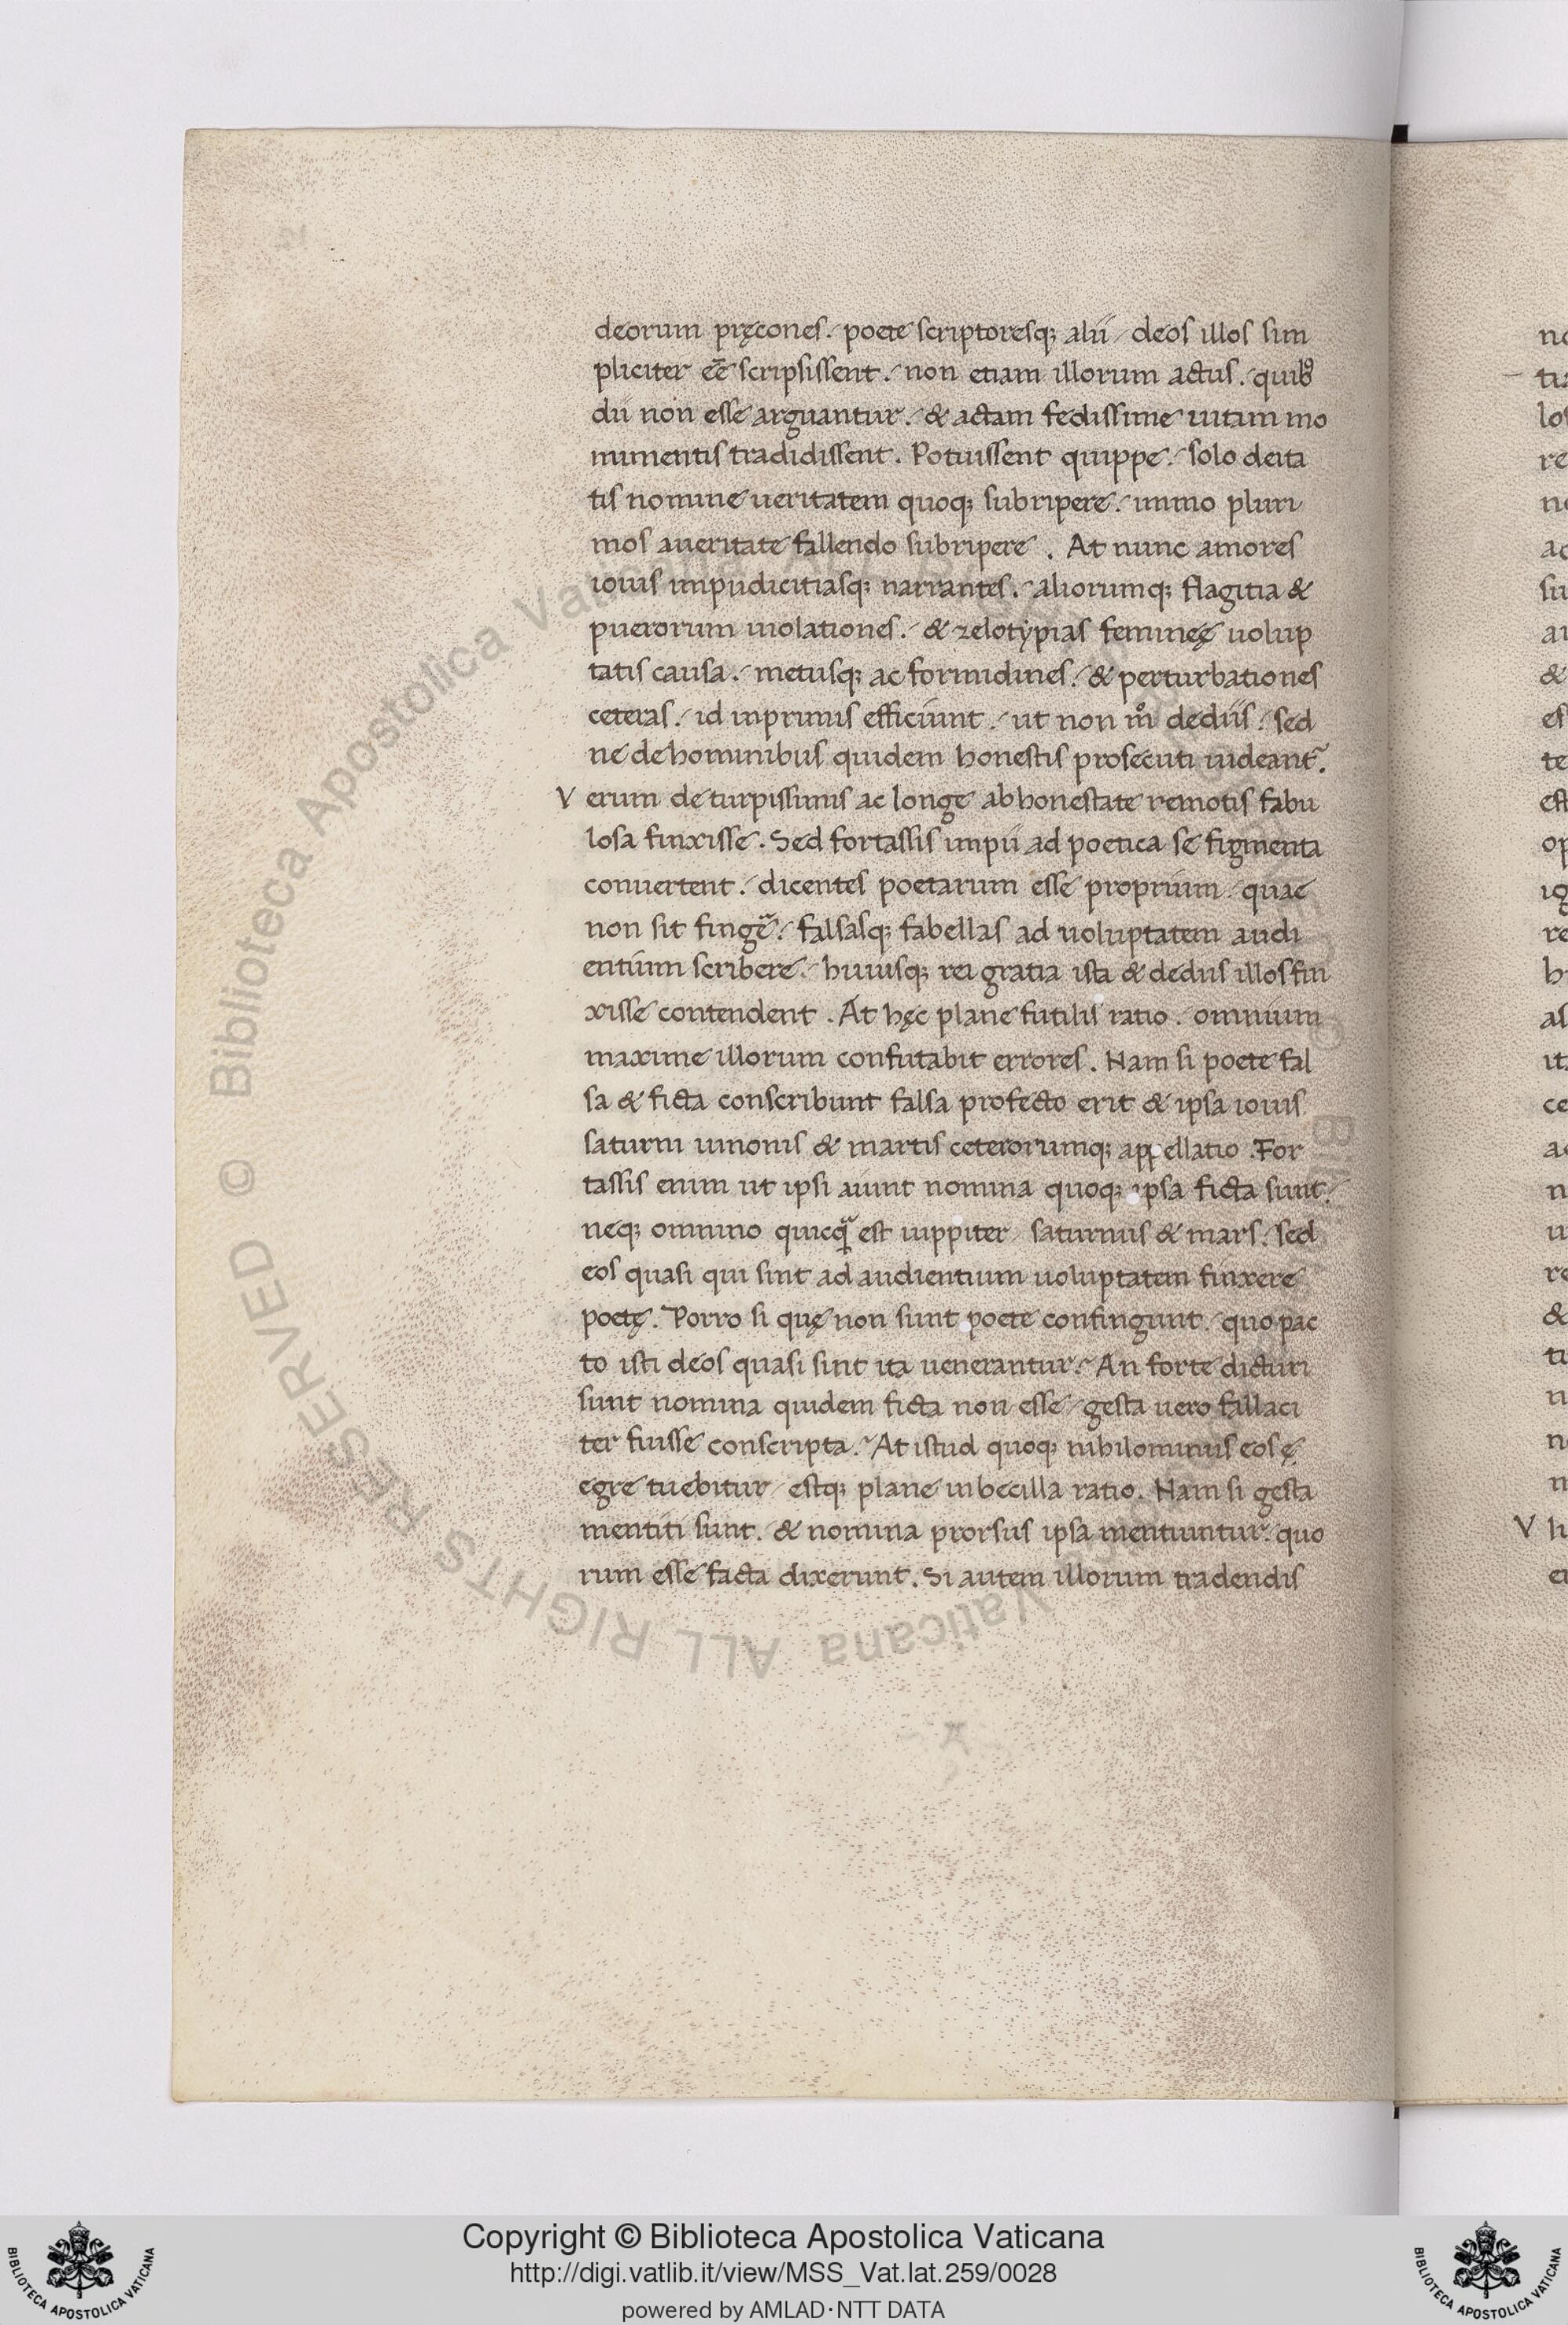 deorum pręcones. poete scriptoresq; alii deos illos sim
pliciter eē scripsissent. non etiam illorum actus. quibꝰ
dii non esse arguantur. & actam fedissime uitam mo
numentis tradidissent. Potuissent quippe. solo deita
tis nomine ueritatem quoq; subripere. immo pluri
mos aueritate fallendo subripere. At nunc amores
iouis impudicitiasq; narrantes. aliorumq; flagitia &
puerorum uiolationes. & zelotypias femineę uolup
tatis causa. metusq; ac formidines. & perturbationes
ceteras. id inprimis efficiunt. ut non mͦ dediis. sed
ne de hominibus quidem honestis prosecuti uideant᷑.
V erum de turpissimis ac longe ab honestate remotis fabu
losa finxisse. Sed fortassis impii ad poetica se figmenta
conuertent. dicentes poetarum esse proprium quae
non sit fingē. falsasq; fabellas ad uoluptatem audi
entium scribere. huiusq; rei gratia ista & dediis illos fin
xisse contendent. At hęc plane futilis ratio. omnium
maxime illorum confutabit errores. Nam si poete fal
sa & ficta conscribunt falsa profecto erit & ipsa iouis
saturni iunonis & martis ceterorumq; appellatio. For
tassis enim ut ipsi aiunt nomina quoq; ipsa ficta sunt.
neq; omnino quicq̄ est iuppiter saturnus & mars. sed
eos quasi qui sint ad audientium uoluptatem finxere
poetę. Porro si quę non sunt poete confingunt. quo pac
to isti deos quasi sint ita uenerantur. An forte dicturi
sunt nomina quidem ficta non esse gesta uero fallaci
ter fuisse conscripta. At istud quoq; nihilominus eos ę
egre tuebitur estq; plane inbecilla ratio. Nam si gesta
mentiti sunt. & nomina prorsus ipsa mentiuntur. quo
rum esse facta dixerunt. Si autem illorum tradendis
Copyright © Biblioteca Apostolica Vaticana
http://digi.vatlib.it/view/MSS_Vat.lat.259/0028
powered by AMLAD·NTT DATA
BIBLIOTECA APOSTOLICA VATICANA
BIBLIOTECA APOSTOLICA VATICANA
© Biblioteca Apostolica Vaticana ALL RIGHTS RESERVED